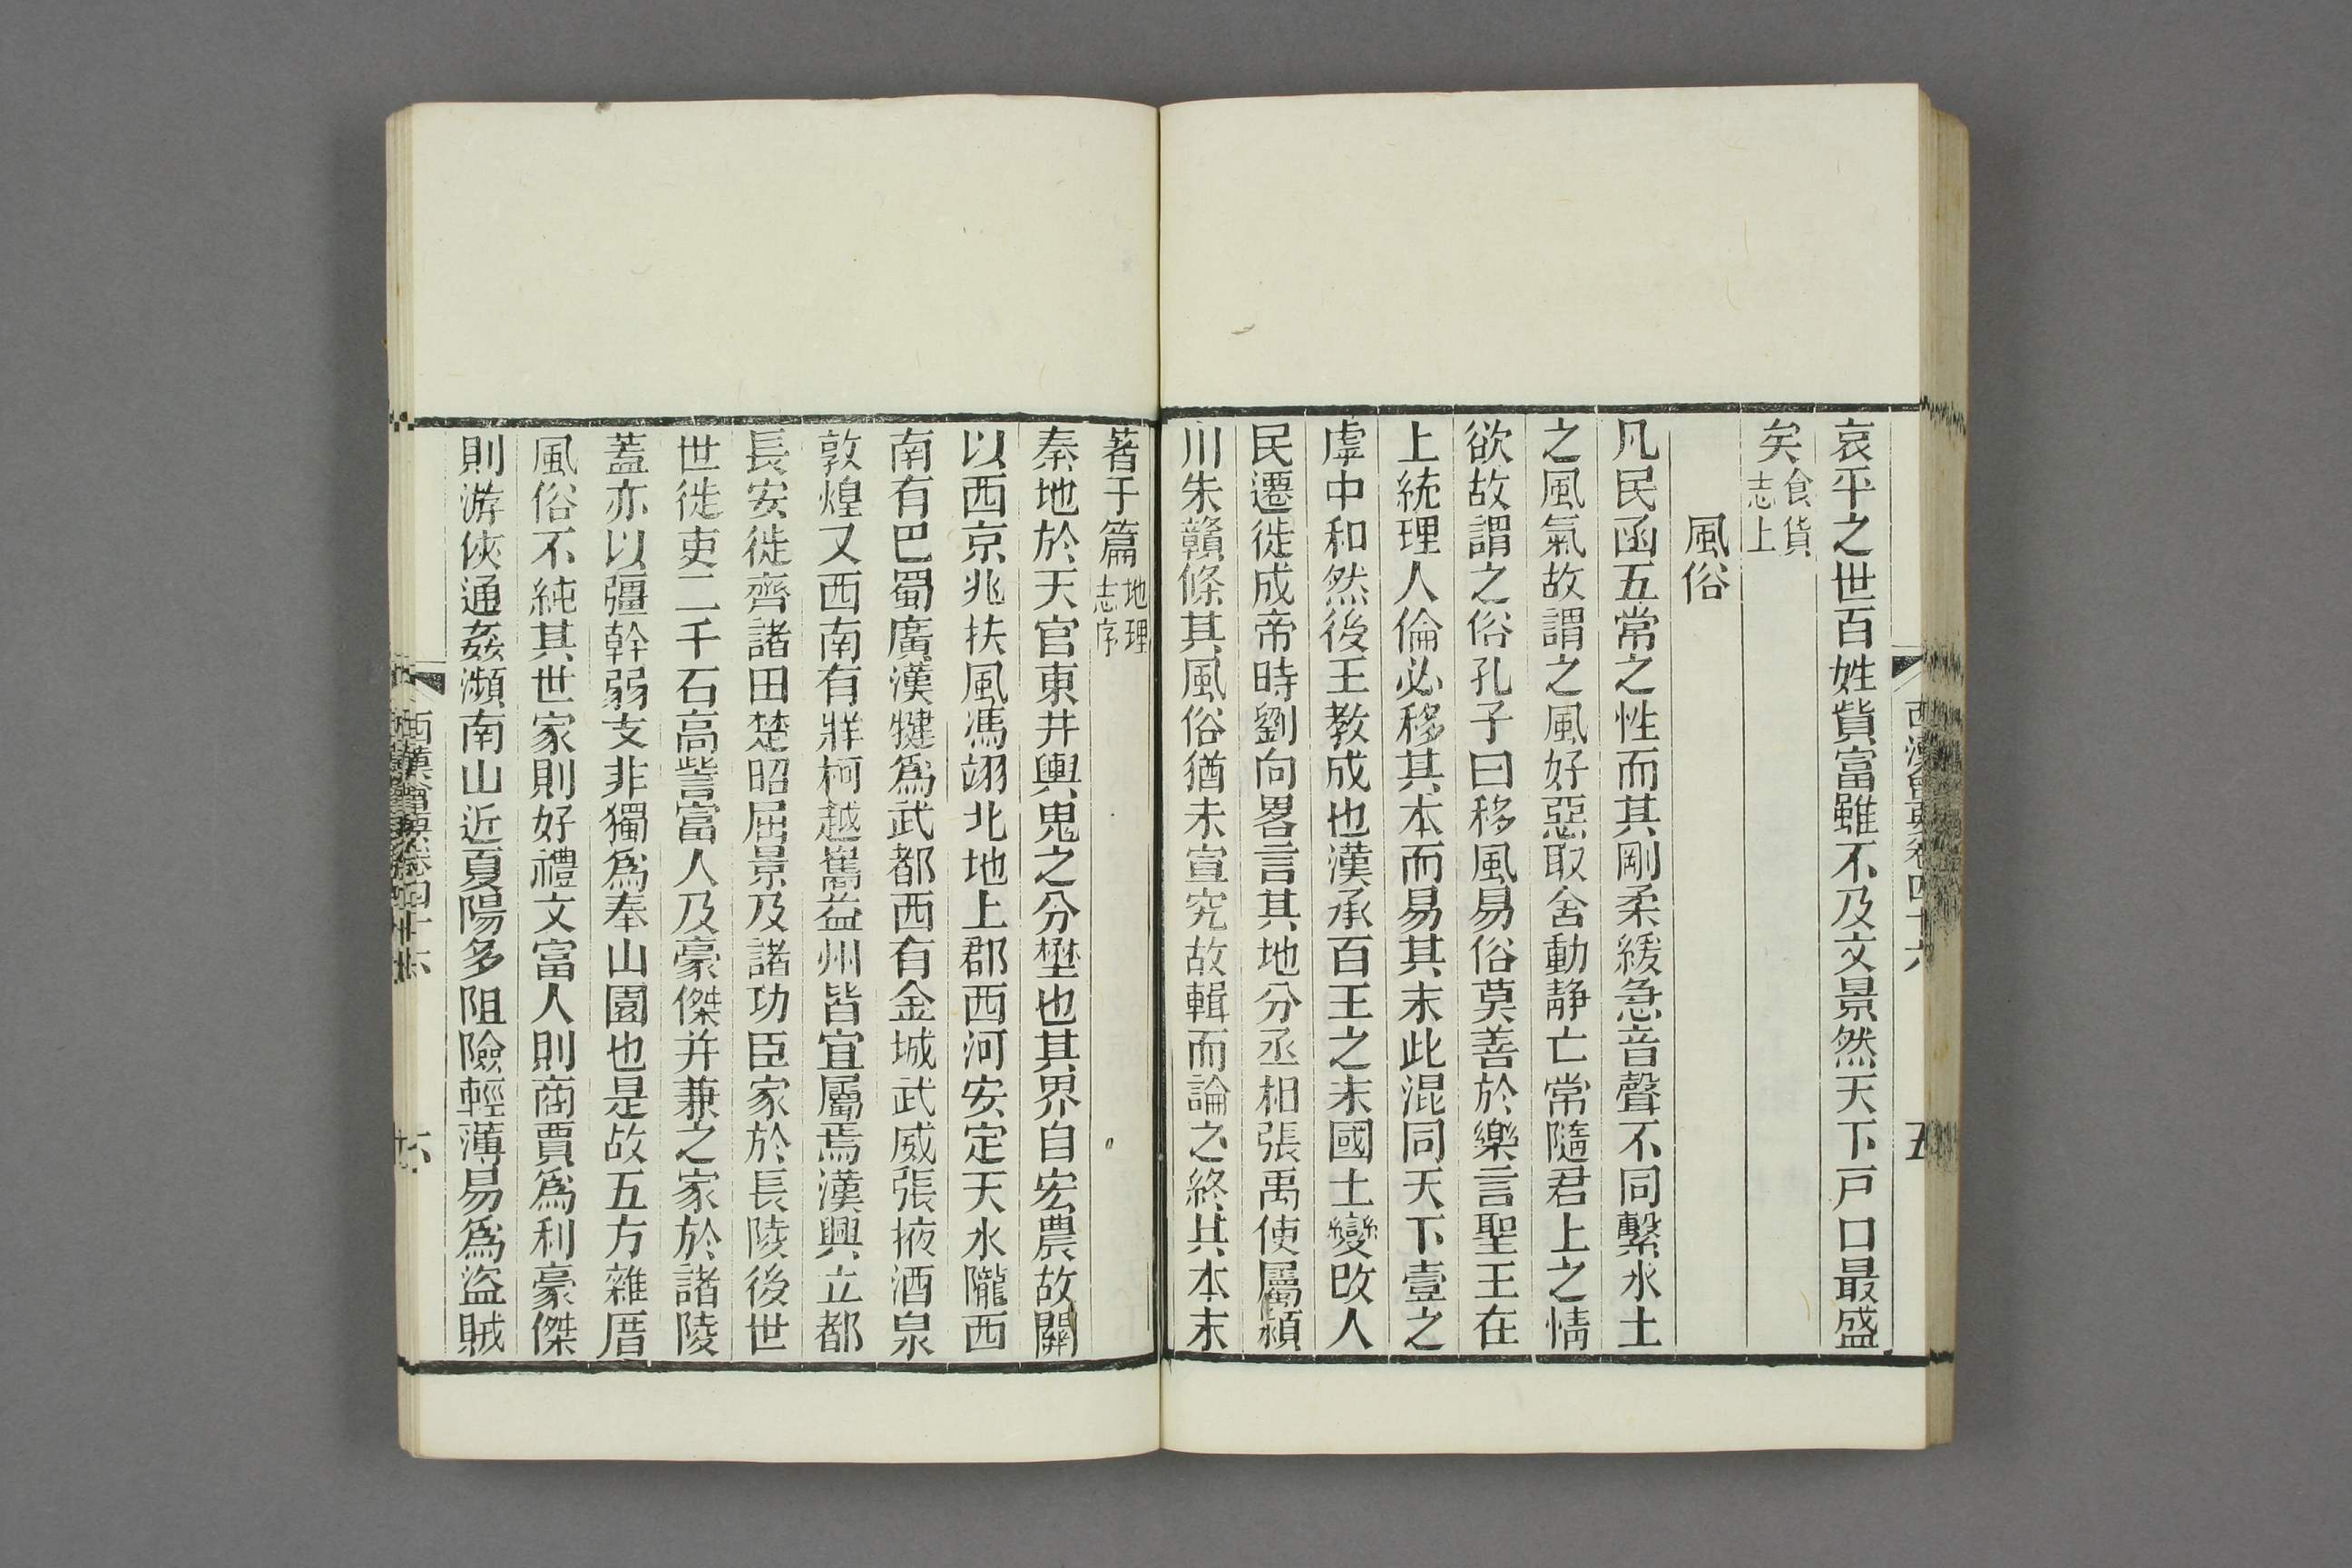 哀平之世百姓貲富雖不及文景然天下戸口最盛
矣食貨志上
風俗
凡民函五常之性而其剛柔緩急音聲不同繫水土
之風氣故謂之風好惡取舍動靜亡常隨君上之情
欲故謂之俗孔子曰移風易俗莫善於樂言聖王在
上統理人倫必移其本而易其末此混同天下壹之
虖中和然後王教成也漢承百王之末國土變改人
民遷徙成帝時劉向畧言其地分丞相張禹使屬潁
川朱贛條其風俗猶未宣究故輯而論之終其本末
著于篇地理志序
秦地於天官東井輿鬼之分壄也其界自宏農故關
以西京兆扶風馮翊北地上郡西河安定天水隴西
南有巴蜀廣漢犍爲武都西有金城武威張掖酒泉
敦煌又西南有牂柯越巂益州皆宜屬焉漢興立都
長安徙齊諸田楚昭屈景及諸功臣家於長陵後世
世徙吏二千石高訾富人及豪傑并兼之家於諸陵
蓋亦以彊幹弱支非獨爲奉山園也是故五方雜厝
風俗不純其世家則好禮文富人則商賈爲利豪傑
則游俠通姦瀕南山近夏陽多阻險輕薄易爲盜賊
西漢會要卷四十六
五
西漢會要卷四十六
六